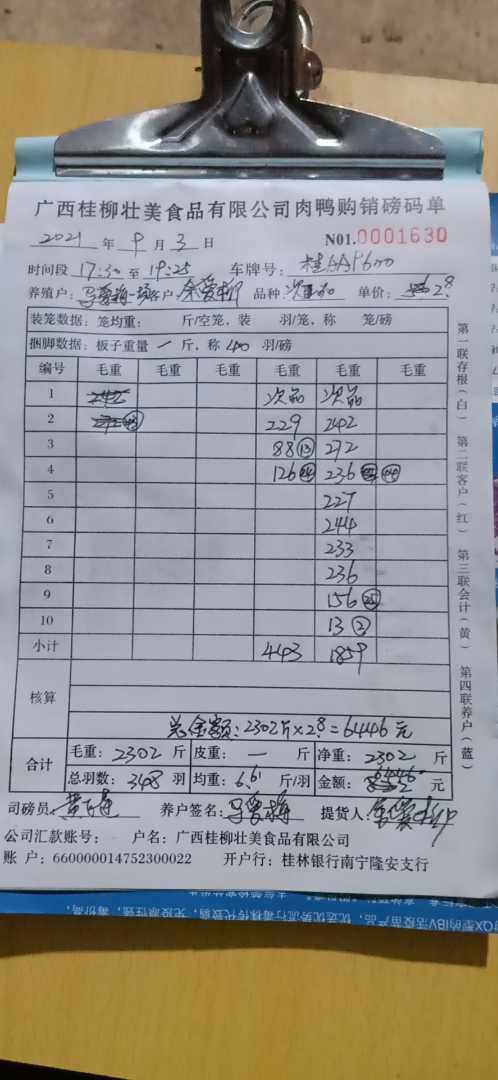 广西桂柳壮美食品有限公司肉鸭购销磅码单
2021 年 9 月 3 日 N01.0001630
时间段 17:30 至 19:25 车牌号:
养殖户: 客户: 品种: 次品 单价: 2.8
装笼数据: 笼均重: 斤/空笼, 装 羽/笼, 称 笼/磅
捆脚数据: 板子重量 一 斤, 称 400 羽/磅
编号 毛重 毛重 毛重 毛重 毛重 毛重
1 242 次品 次品
2 229 242
3 88 13 272
4 126 236
5 227
6 244
7 233
8 236
9 156 25
10 13 2
小计 443 1859
核算
总金额:2302斤×2.8=6446元
合计 毛重: 2302 斤 皮重: 一 斤 净重: 2302 斤
总羽数: 348 羽 均重: 6.61 斤/羽 金额: 6446 元
司磅员: 养户签名: 提货人:
公司汇款账号: 户名: 广西桂柳壮美食品有限公司
账 户: 660000014752300022 开户行: 桂林银行南宁隆安支行
第一联存根(白) 第二联客户(红) 第三联会计(黄) 第四联养户(蓝)